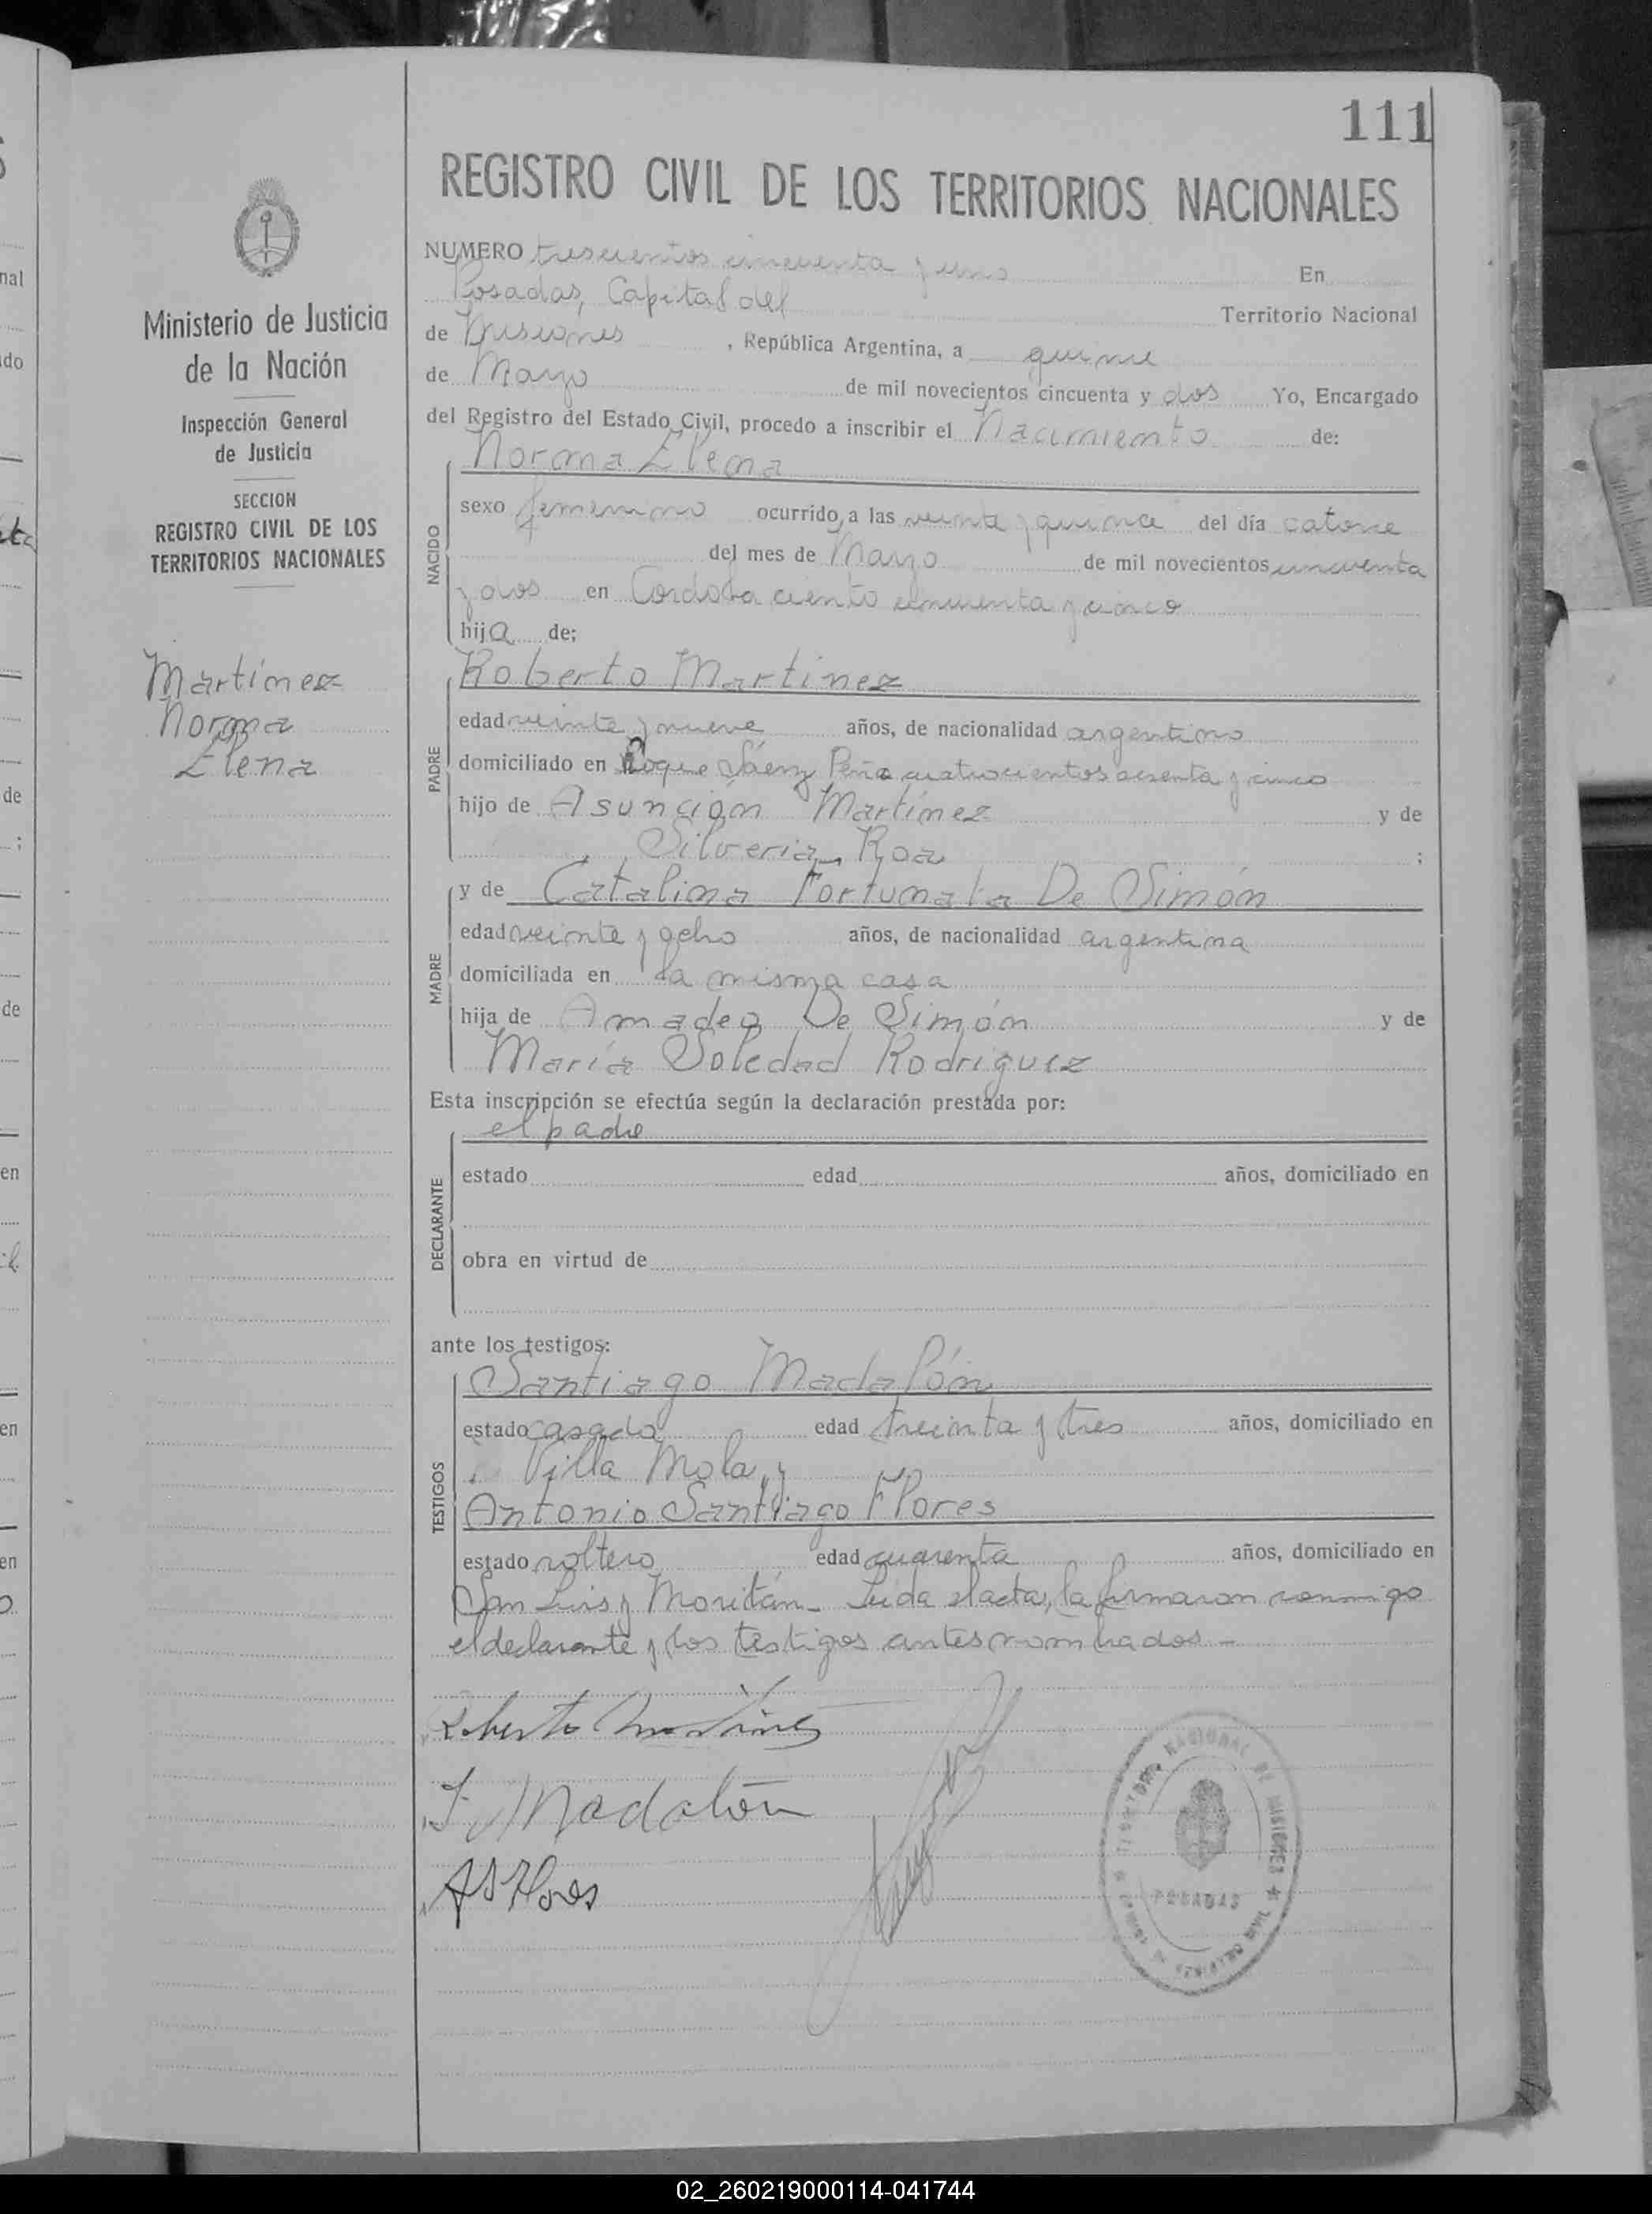 111
REGISTRO CIVIL DE LOS TERRITORIOS NACIONALES
NUMERO trescientos cincuenta y uno En
Posadas, Capital del Territorio Nacional
de Misiones, República Argentina, a quince
de Marzo de mil novecientos cincuenta y dos Yo, Encargado
del Registro del Estado Civil, procedo a inscribir el Nacimiento de:
NACIDO
Norma Elena
sexo femenino ocurrido, a las veinte y quince del día catorce
del mes de Marzo de mil novecientos cincuenta
y dos en Cordoba ciento cincuenta y cinco
hija de;
PADRE
Roberto Martinez
edad veinte y nueve años, de nacionalidad argentino
domiciliado en Roque Sáenz Peña cuatrocientos y cinco
hijo de Asunción Martínez y de
Silveria Roa ;
MADRE
y de Catalina Fortunata De Simón
edad veinte y ocho años, de nacionalidad argentina
domiciliada en la misma casa
hija de Amadeo De Simón y de
María Soledad Rodríguez
Esta inscripción se efectúa según la declaración prestada por:
DECLARANTE
el padre
estado edad años, domiciliado en
obra en virtud de
ante los testigos:
TESTIGOS
Santiago Madalón
estado casado edad treinta y tres años, domiciliado en
Villa Mola, y
Antonio Santiago Flores
estado soltero edad cuarenta años, domiciliado en
San Luis y Moritán_ Leida el acta, la firmaron conmigo
el declarante y los testigos antes nombrados_
Roberto Martinez
S. Madalón
A S Flores
Ministerio de Justicia
de la Nación
Inspección General
de Justicia
SECCION
REGISTRO CIVIL DE LOS
TERRITORIOS NACIONALES
Martínez
Norma
Elena
NACIONAL DE MISIONES
POSADAS
02_260219000114-041744